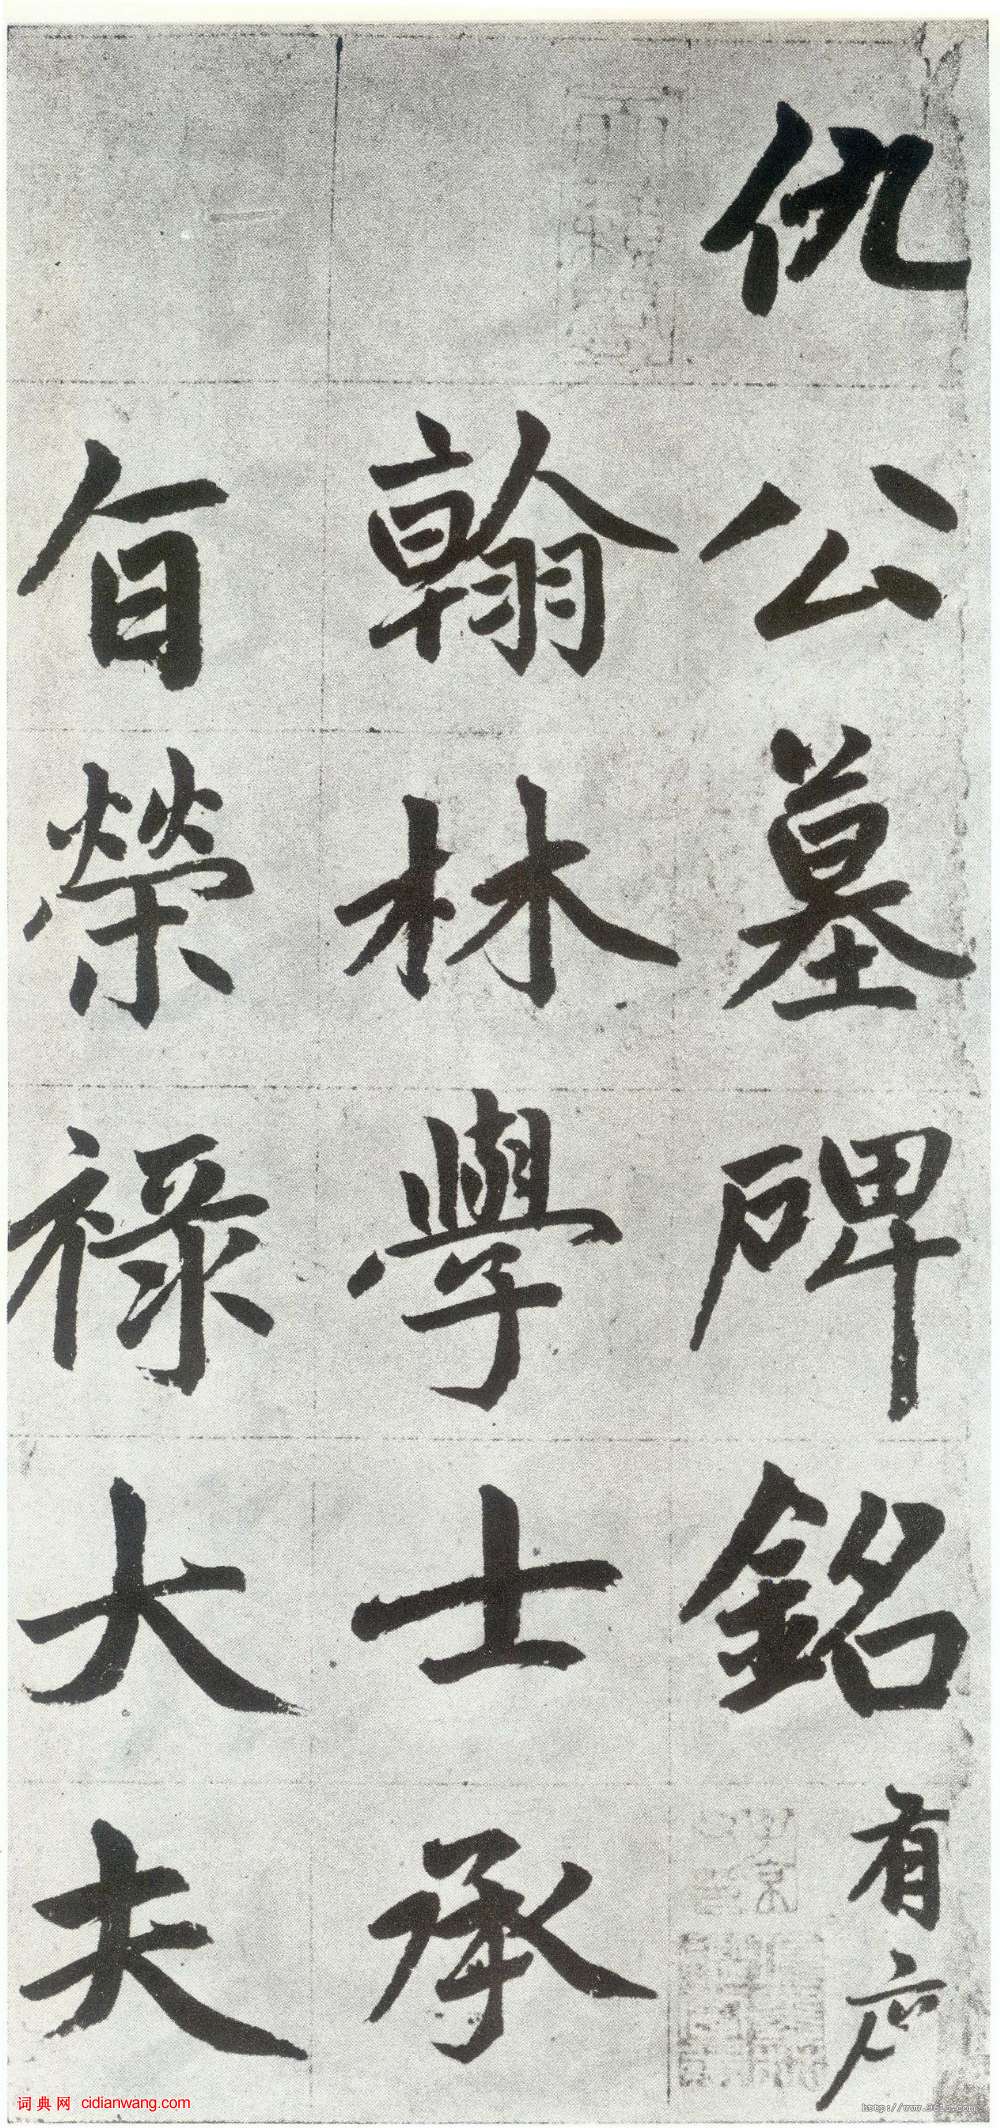 仇公墓碑銘有序
翰林學士承
旨榮祿大夫
词典网 cidianwang.com